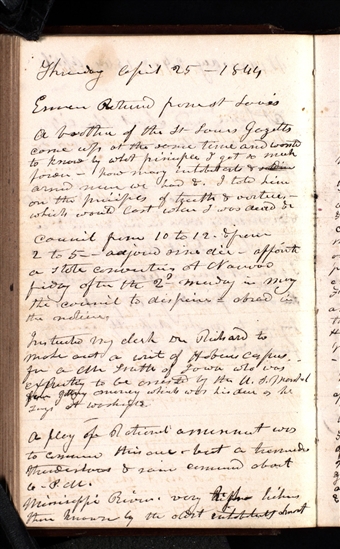 Thursday April 25 - 1844
Emma Returnd from st Louis
A brother of the St Louis Gazette
came up at the same time and wanted
to know by what principle I got so much
power - how many inhabitants &
armed men we had &. I told him
on the principles of truth & virtue -
which would last when I was dead &
Council from 10 to 12. & from
2 to 5 - adjournd sine die - appoint
a state convention at Nauvoo
friday after the 2d monday in may
the council to disperse abroad in
the nation.
Instructed my clerk Dr Richard to
make out a writ of Habeus Corpus.
for a Mr Smith of Iowa who was
expecting to be arrested by the U. S. Marshal
for getting money which was his due as he
says at washington.
A play of Rational amusement was
to commence this eve. but a tremendous
thunder & rain commencd about
6. P.M.
Mississippi River. very high higher
than known by the oldest inhabitants about